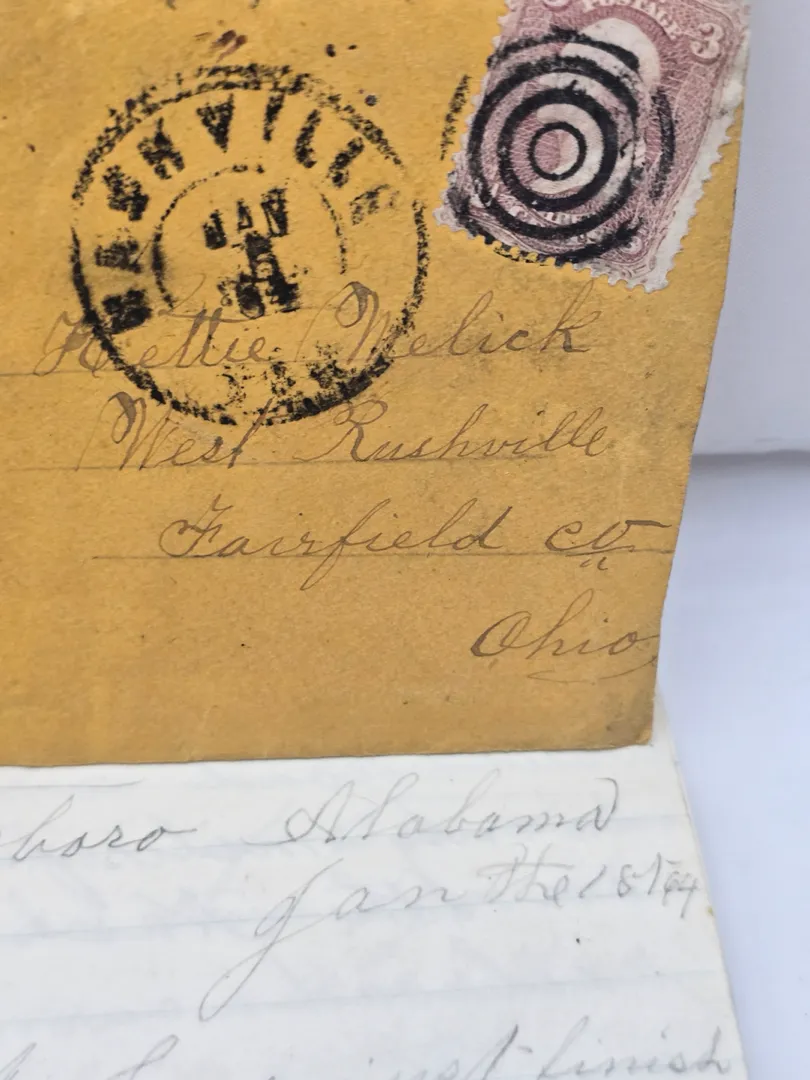 POSTAGE 3
NASHVILLE
JAN
Hettie Melick
West Rushville
Fairfield co
Ohio
boro Alabama
Jan the 18th/64
just finish